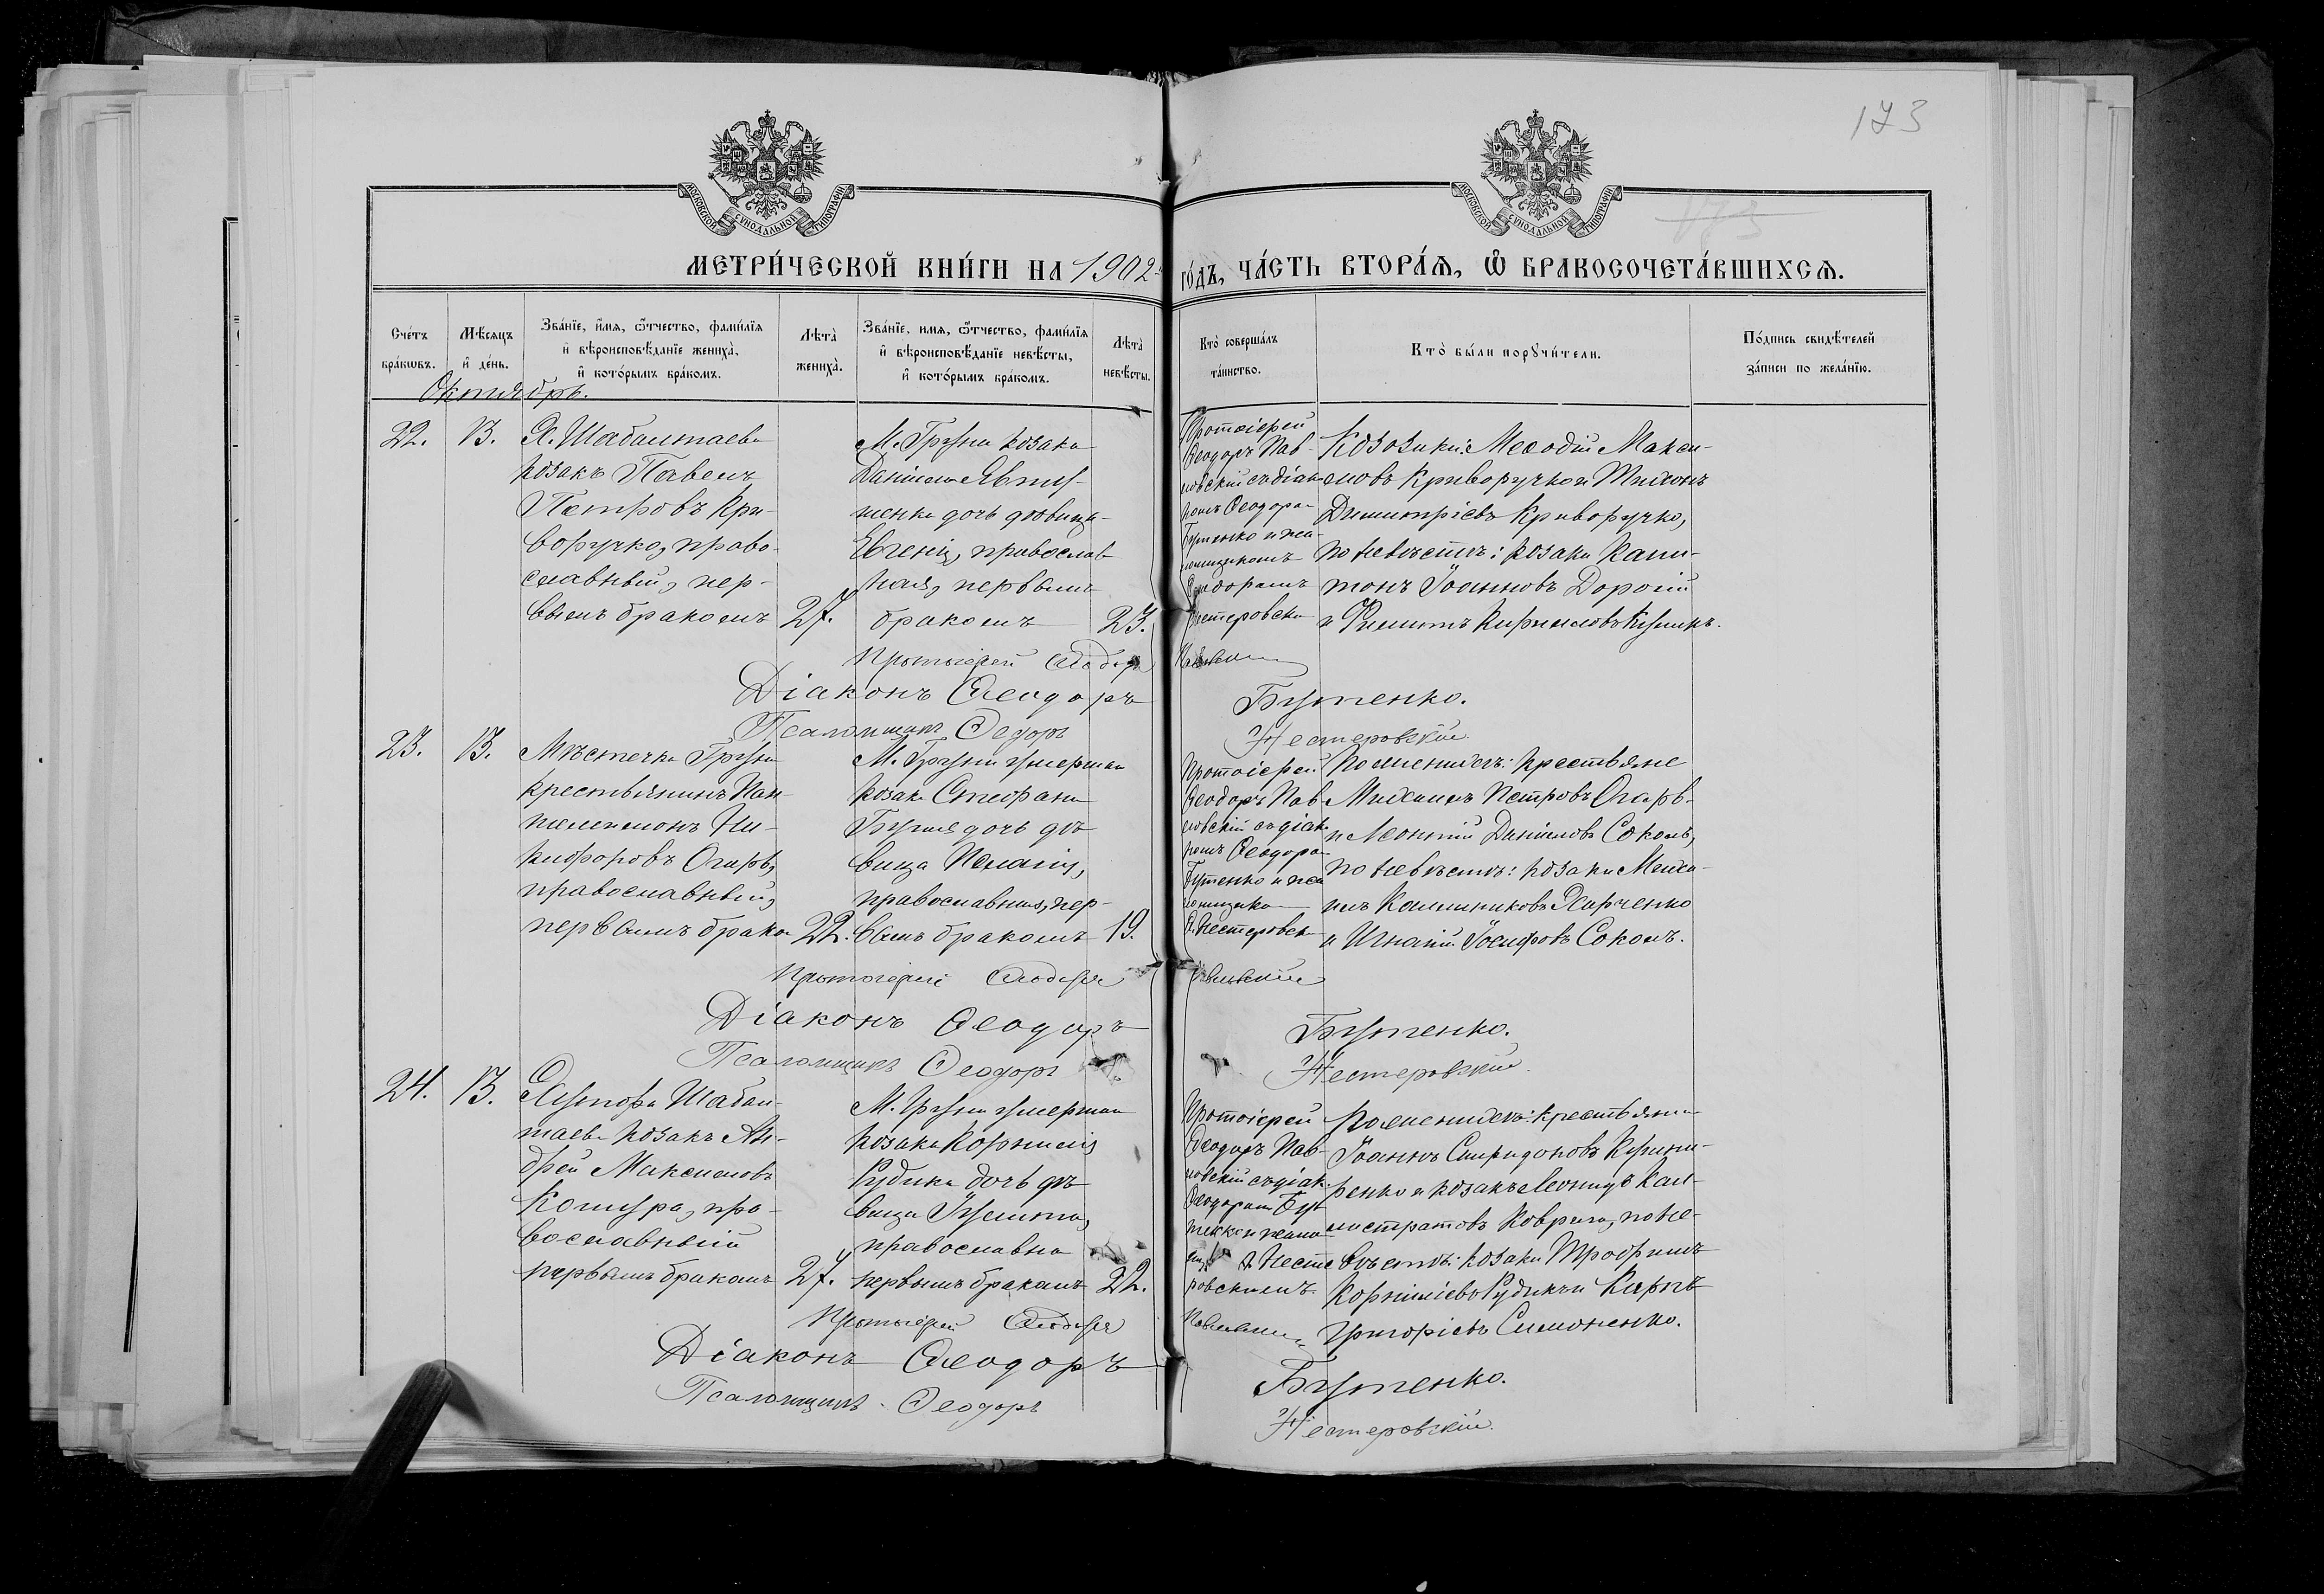 173
МОСКОВСКОЙ СѴНОДАЛЬНОЙ ТИПОГРАФІИ
МОСКОВСКОЙ СѴНОДАЛЬНОЙ ТИПОГРАФІИ
МЕТРИ́ЧЕСКОЙ КНИ́ГИ НА 1902
ГО́ДЪ, ЧА́СТЬ ВТОРА́Ѧ, Ѡ҆ БРАКОСОЧЕТА́ВШИХСѦ.
Сче́тъ бра́кѡвъ.
Мѣ́сѧцъ и҆ де́нь.
Зва́нїе, и҆́мѧ, ѻ҆́тчество, фами́лїѧ и҆ вѣроисповѣ́данїе жениха̀, и҆ кото́рымъ бра́комъ.
Лѣта̀ жениха̀.
Зва́нїе, имѧ, ѻ҆́тчество, фами́лїѧ и҆ вѣроисповѣ́данїе невѣ́сты, и҆ кото́рымъ бра́комъ.
Лѣта̀ невѣ́сты.
Кто̀ соверша́лъ та́инство.
Кто̀ бы́ли порꙋчи́тели.
По́дпись свидѣ́телей за́писи по жела́нїю.
Октябрь.
22.
13.
Х. Шабалтаева
козакъ Павелъ
Петровъ Кри-
воручко, право-
славный, пер-
вымъ бракомъ
27.
М. Груни козака
Даніила Евту-
шенка дочь девица
Евгенія, православ
ная, первымъ
бракомъ
23.
Протоіерей
Ѳеодоръ Пав-
ловскій съ діако
номъ Ѳеодоро-
Бутенко и пса-
ломщикомъ
Ѳеодоромъ
Нестеровски
Козаки: Меѳодій Макси-
мовъ Криворучко и Тихонъ
Димитріевъ Криворучко,
по невѣстѣ: козаки Капи-
тонъ Іоанновъ Дорогій
и Филиппъ Кирилловъ
Протоіерей Ѳеодоръ Павловскій
Діаконъ Ѳеодоръ Бутенко.
Псаломщикъ Ѳеодоръ Нестеровскій.
23.
13.
Мѣстечка Груни
крестьянинъ Пан-
телеимонъ Ни-
кифоровъ Огирь,
православный,
первымъ брако
22.
М. Груни умершаго
козака Стефана
дочь дѣ-
вица Пелагія,
православная, пер-
вымъ бракомъ
19.
Протоіерей
Ѳеодоръ Пав
ловскій съ діако
номъ Ѳеодоро-
Бутенко и пса
ломщико-
Ѳ. Нестеровск
По женихѣ: крестьяне
Михаилъ Петровъ Огирь
и Леонтій Даніиловъ Соколъ,
по невѣстѣ: козаки Миха-
илъ Каллиниковъ Харченко
и Игнатій Іосифовъ Соколъ.
Протоіерей Ѳеодоръ Павловскій
Діаконъ Ѳеодоръ Бутенко.
Псаломщикъ Ѳеодоръ Нестеровскій.
24.
13.
Хутора Шабал-
таева козакъ Ан-
дрей Максимовъ
Кошура, пра-
вославный
первымъ бракомъ
27.
М. Груни умершаго
козака Корнилія
Рудика дочь дѣ-
вица
православна
первымъ бракомъ
22.
Протоіерей
Ѳеодоръ Пав-
ловскій съ діак.
Ѳеодоромъ Бу-
тенко и псало-
Ѳ. Несте
ровскимъ
По женихѣ: крестьянинъ
Іоаннъ Спиридоновъ
и козакъ Леонидъ Кал-
листратовъ Коврига, по не-
вѣстѣ: козаки Трофимъ
Корниліевъ Рудикъ и Карпъ
Григорьевъ Симоненко.
Протоіерей Ѳеодоръ Павловскій
Діаконъ Ѳеодоръ Бутенко.
Псаломщикъ Ѳеодоръ Нестеровскій.